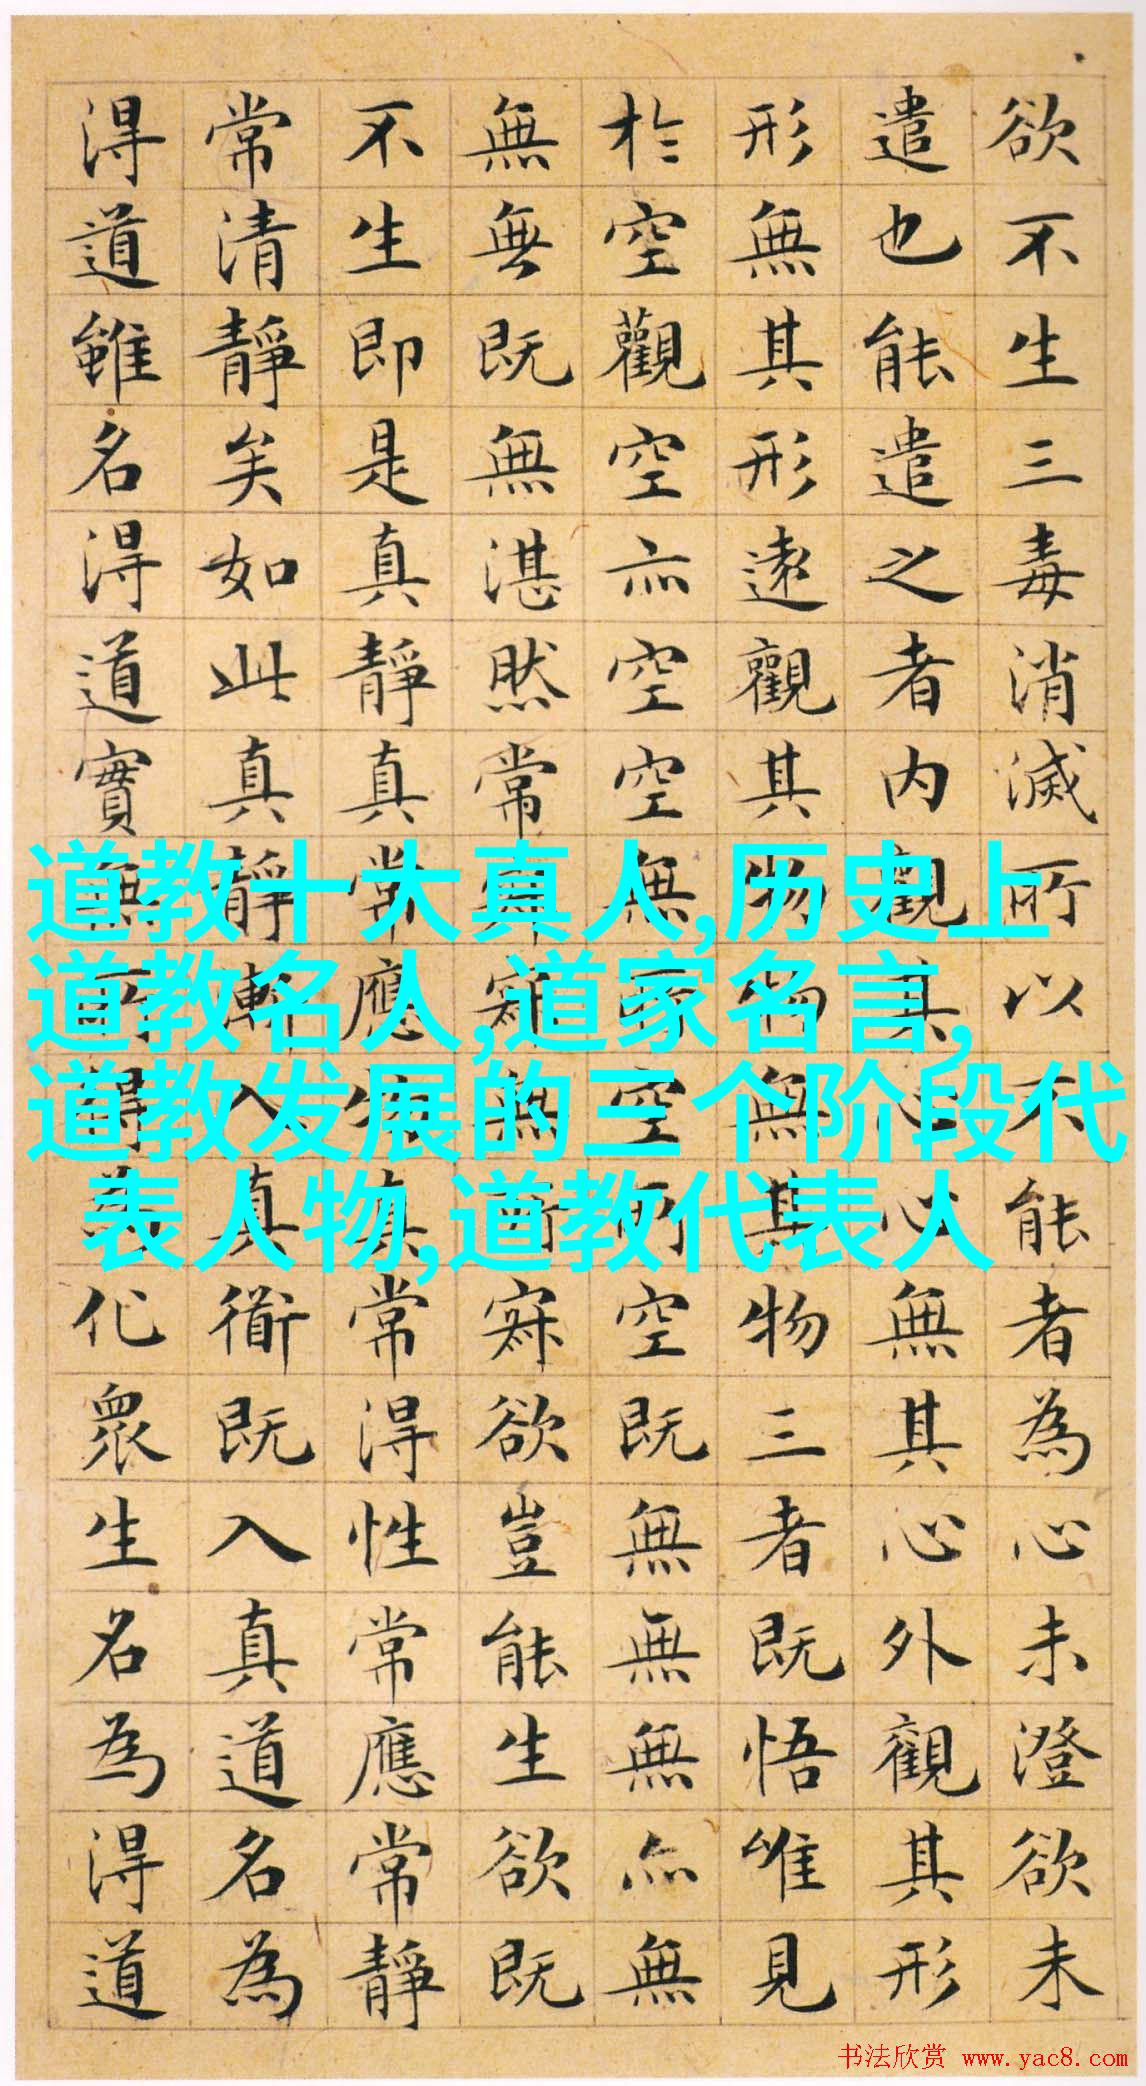 欲不生三毒消滅所以不能者為心未澄欲未
遣也能遣之者内觀其心心無其心外觀其形
形無其形遠觀其物物無其物三者既悟唯見
於空觀空亦空空無所空所空既無無無亦無
無無既無湛然常寂寂無所寂欲豈能生欲既
不生即是真靜真常應物真常得性常應常靜
常清靜矣如此真靜漸入真衜既入真道名為
得道雖名得道實無所得為化眾生名為得道
道教十大真人,历史上
道教名人,道家名言,
道教发展的三个阶段代
表人物,道教代表人
书法欣赏 www.yac8.com